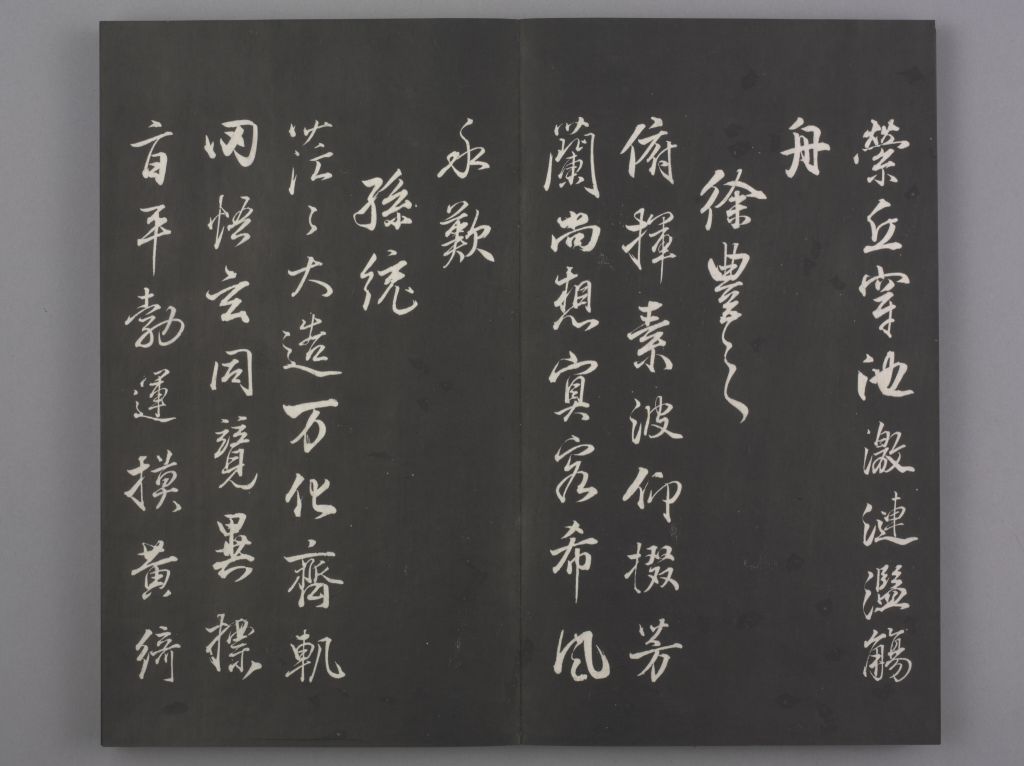 縈丘穿池激漣濫觴
舟
徐豐之
俯揮素波仰掇芳
蘭尚想客希風
永歎
孫統
茫〻大造万化齊軌
罔悟玄同競異摽
旨平勃運摸黃綺